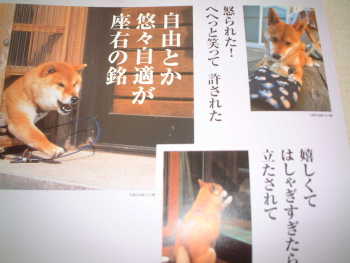 怒られた!
へへっと笑って 許された
自由とか
悠々自適が
座右の銘
嬉しくて
はしゃぎすぎたら
立たされて